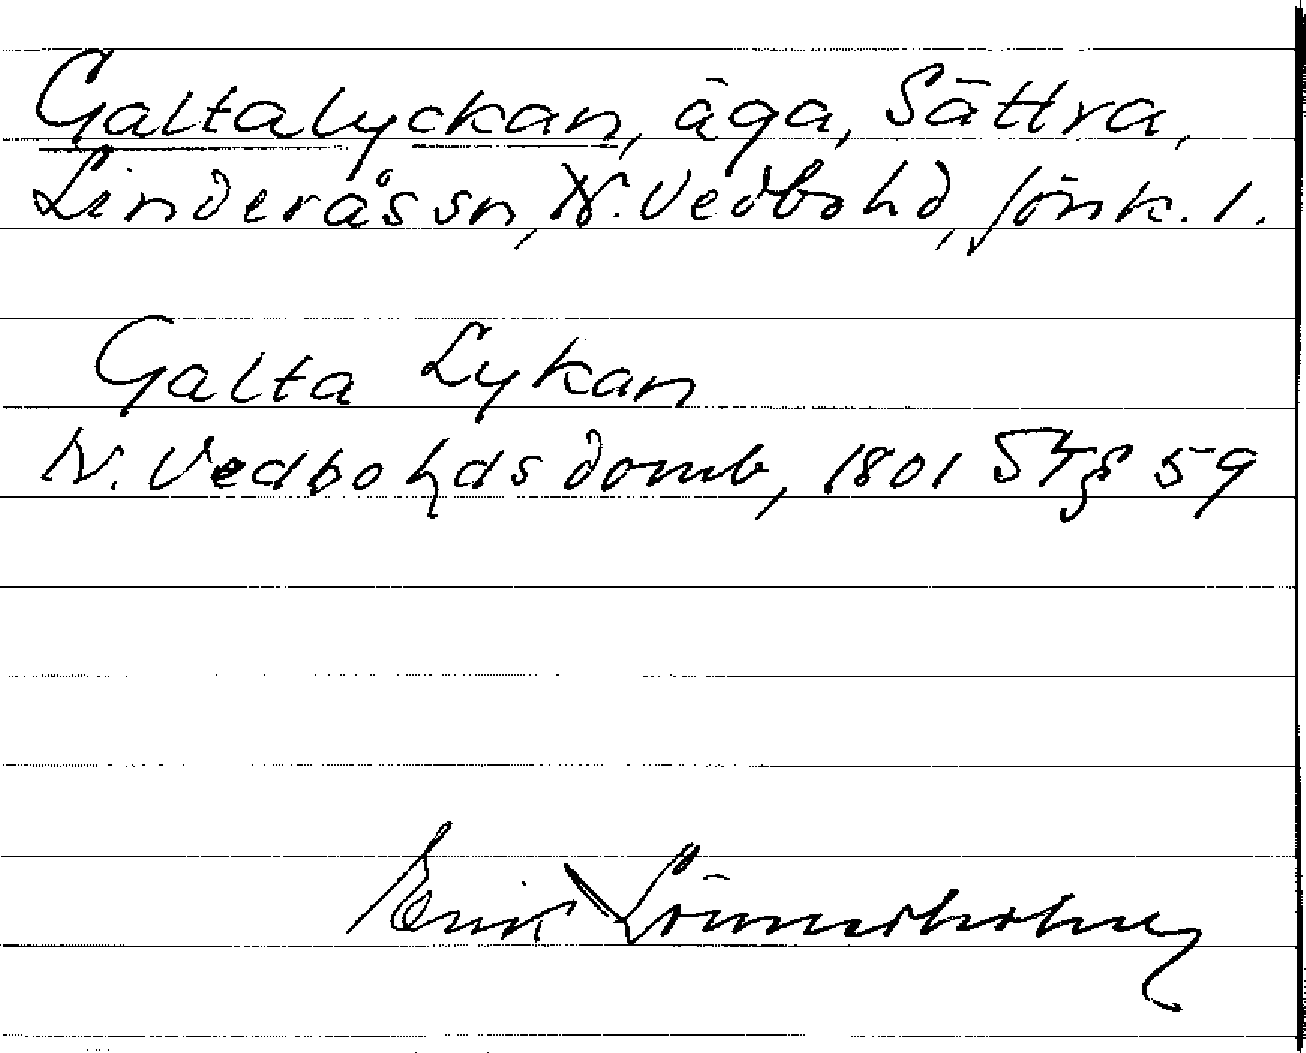 Galtalyckan, äga, Sättra,
Linderås sn, N. Vedbo hd, Jönk. l.
Galta Lykan
N. Vedbo hds domb, 1801 ST § 59
Erik Lönnerholm